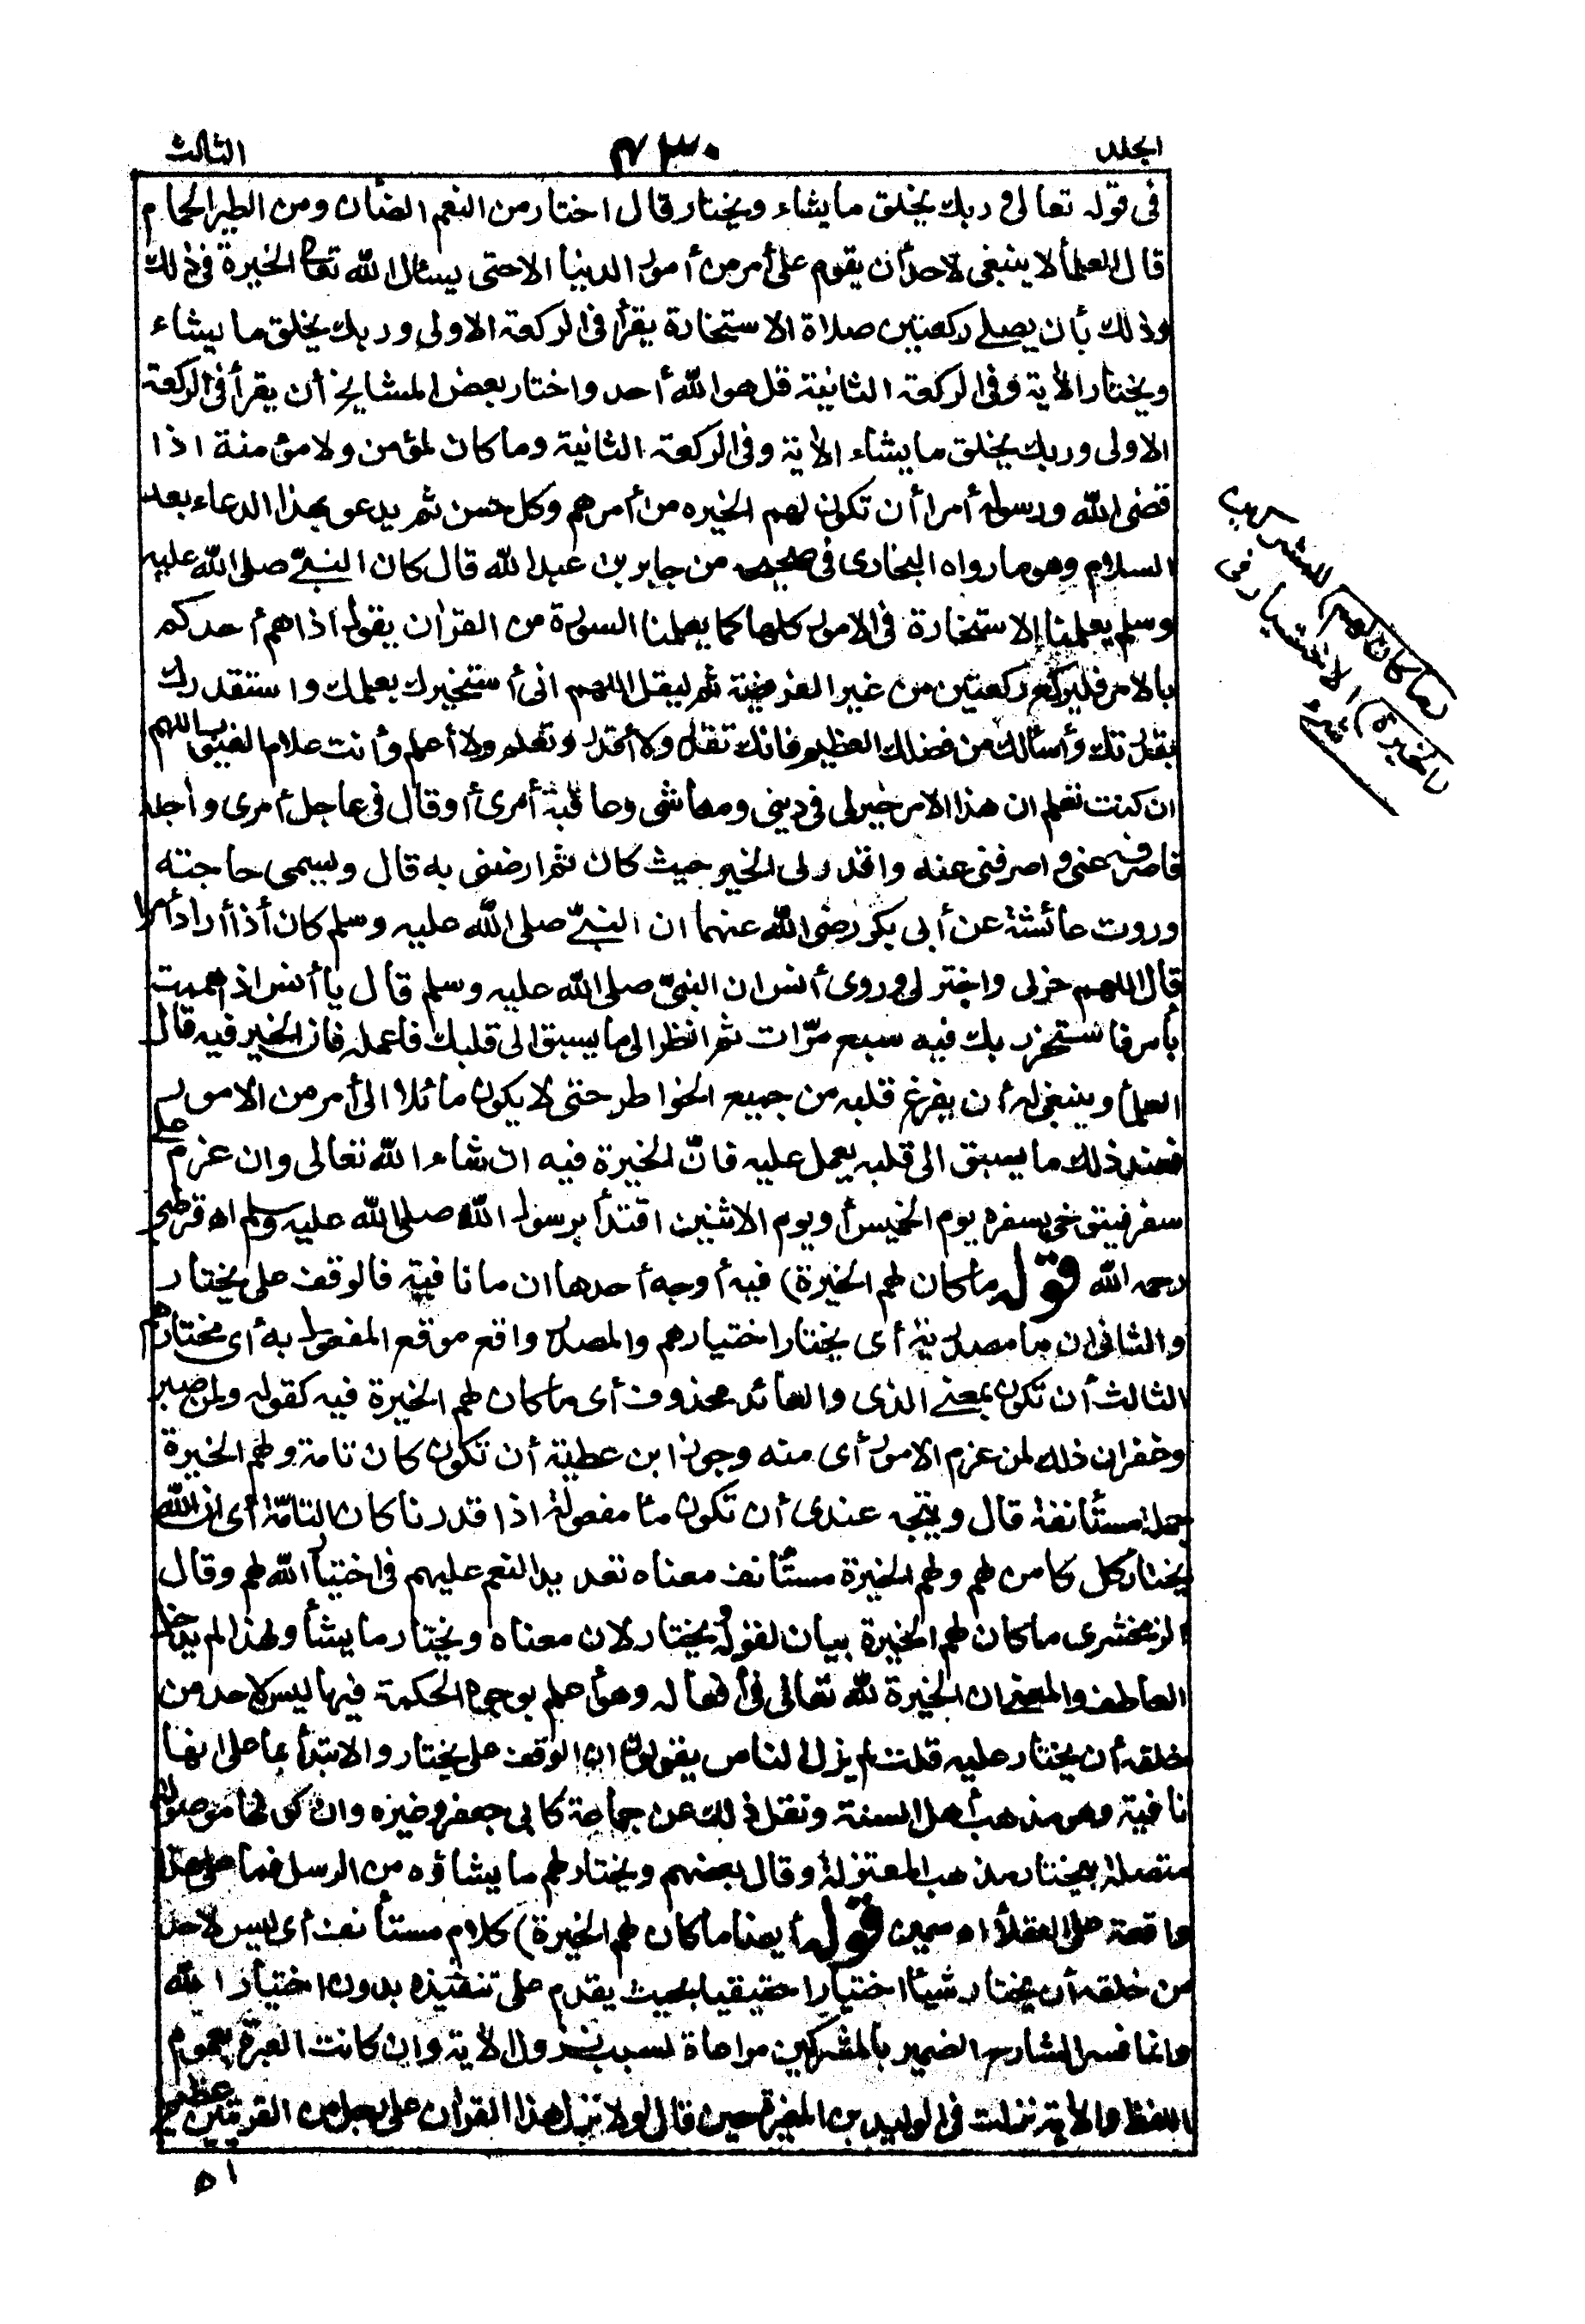 الجلد ٤٣٠ الثالث
فى قوله تعالى وربك يخلق ما يشاء ويختار قال اختار من النعم الضأن ومن الطير الحمام
قال العلمأ لا ينبغى لاحد أن يقوم على أمر من أمور الدنيا الا حتى يسئال الله تعالى الخيرة فى ذلك
وذلك بأن يصلى ركعتين صلاة الاستخارة يقرأ فى الركعة الاولى وربك يخلق ما يشاء
ويختار الأية وفى الركعة الثانية قل هو الله أحد واختار بعض المشايخ أن يقرأ فى الركعة
الاولى وربك يخلق ما يشاء الأية وفى الركعة الثانية وما كان لمؤمن ولا مؤمنة اذا
قضى الله ورسوله أمرا أن تكون لهم الخيره من أمرهم وكل حسن ثم يدعو بهذا الدعاء بعد
السلام وهو ما رواه البخارى فى صحيحه من جابر بن عبد الله قال كان النبىّ صلى الله عليه
وسلم يعلمنا الاستخارة فى الامور كلها كما يعلمنا السورة من القرأن يقول اذا هم أحدكم
بالامر فليركع ركعتين من غير الفريضة ثم ليقل اللهم انى أستخيرك بعلمك واستقدرك
بقدرتك وأسألك من فضلك العظيم فانك تقدر ولا أقدر وتعلم ولا أعلم وأنت علام الغيوب اللهم
ان كنت تعلم ان هذا الامر خير لى فى دينى ومعاشى وعاقبة أمرى أو قال فى عاجل أمرى وأجله
فاصرفه عنى واصرفنى عنه واقدر لى الخير حيث كان ثم ارضنى به قال ويسمى حاجته
وروت عائشة عن أبى بكر رضى الله عنهما ان النبىّ صلى الله عليه وسلم كان أذا أراد أمرا
قال اللهم خر لى واختر لى وروى أنس ان النبىّ صلى الله عليه وسلم قال يا أنس اذا هممت
بأمر فاستخر ربك فيه سبع مرّات ثم انظر الى ما يسبق الى قلبك فاعمله فان الخير فيه قال
العلمأ وينبغى له أن يفرغ قلبه من جميع الخواطر حتى لا يكون مائلا الى أمر من الامور
فعند ذلك ما يسبق الى قلبه يعمل عليه فانّ الخيرة فيه ان شاء الله تعالى وان عزم على
سفر فيتوخى بسفره يوم الخميس أو يوم الاثنين اقتدأ برسول الله صلى الله عليه وسلم اه قرطبى
رحمه الله قوله ما كان لهم الخيرة) فيه أوجه أحدها ان ما نافية فالوقف على يختار
والثانى ان ما مصدرية أى يختار اختيارهم والمصدر واقع موقع المفعول به أى مختارهم
الثالث أن تكون بمعنى الذى والعائد محذوف أى ما كان لهم الخيرة فيه كقوله ولمن صبر
وغفر ان ذلك لمن عزم الامور أى منه وجوز ابن عطية أن تكون كان تامة ولهم الخيرة
جملة مستأنفة قال ويتجه عندى أن تكون ما مفعولة اذا قدرنا كان التامّة أى ان الله
يختار كل كائن لهم ولهم الخيرة مستأنف معناه تعديد النعم عليهم فى اختيار الله لهم وقال
الزمخشرى ما كان لهم الخيرة بيان لقوله ويختار لان معناه ويختار ما يشأ ولهذا لم يدخل
العاطف والمعنى ان الخيرة لله تعالى فى أفعاله وهو أعلم بوجوه الحكمة فيها ليس لاحد من
خلقه أن يختار عليه قلت لم يزل الناس يقولون ان الوقف على يختار والابتدأ بما على انها
نافية وهو مذهب أهل السنة ونقل ذلك عن جماعة كأبى جعفر وغيره وان كونها موصولة
متصلة بيختار مذهب المعتزلة وقال بعضهم ويختار لهم ما يشاؤه من الرسل فما على هذا
واقعة على العقلأ اه سمين قوله أيضا ما كان لهم الخيرة) كلام مستأنف أى ليس لاحد
من خلقه أن يختار شيئا اختيارا حقيقيا بحيث يقدم على تنفيذه بدون اختيار الله
وانما فسر الشارح الضمير بالمشركين مراعاة لسبب نزول الأية وان كانت العبرة بعموم
اللفظ والأية نزلت فى الوليد بن المغيرة حين قال لولا نزل هذا القرأن على رجل من القريتين عظيم
اه
ما كان لهم) للمشركين
الخيرة) الاختيار فى
شئ